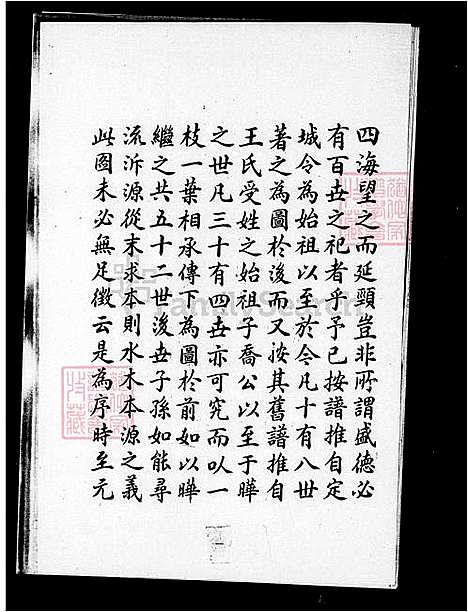 四海望之而延頸豈非所謂盛德必
有百世之祀者乎予已按譜推自定
城令為始祖以至於今凡十有八世
著之為圖於後而又按其舊譜推自
王氏受姓之始祖子喬公以至于曄
之世凡三十有四世亦可究而以一
枝一葉相承傳下為圖於前如以曄
繼之共五十二世後世子孫如能尋
流泝源從末求本則水木本源之義
此圖未必無足徵云是為序時至元
FamilySearch
一